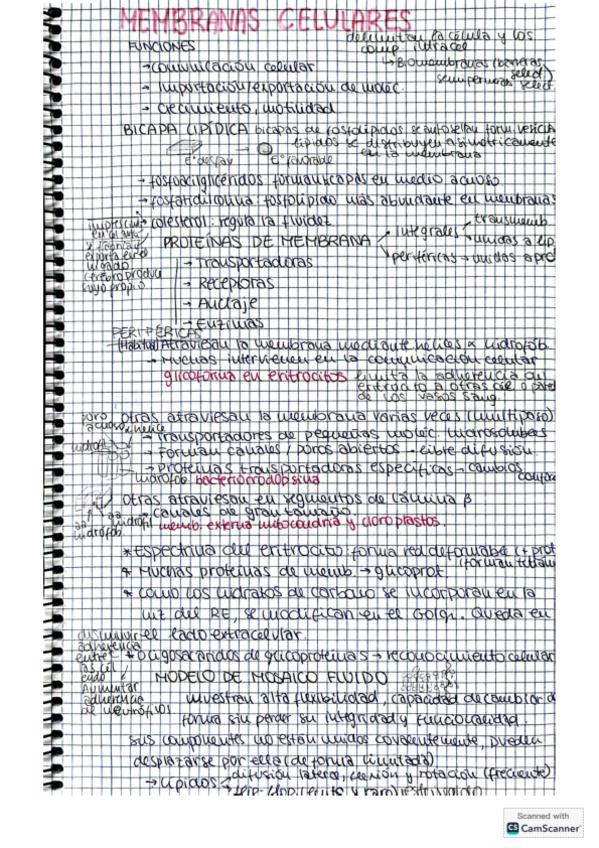 MEMBRANAS CELULARES
FUNCIONES
delimitan la célula y los
comp. intracel
→ Biomembranas (barreras
semipermeab select)
→ comunicación celular
→ Importación/exportación de moléc.
→ crecimiento, motilidad
BICAPA LIPÍDICA bicapas de fosfolípidos se autosellan form. vesícula
lípidos se distribuyen asimétricamente
en la membrana
E° desfav E° favorable
→ fosfoacilglicéridos forman bicapas en medio acuoso
→ fosfatidilcolina: fosfolípido más abundante en membranas
→ colesterol: regula la fluidez
PROTEÍNAS DE MEMBRANA
integrales
transmemb
unidas a lip
periféricas → unidas a prot
cerebro produce
suyo propio
→ Transportadoras
→ Receptoras
→ Anclaje
→ Enzimas
PERIFÉRICAS
(Habitual) Atraviesan la membrana mediante hélices α hidrófob.
→ Muchas intervienen en la comunicación celular
glicoforina en eritrocitos limita la adherencia del
eritrocito a otras cél o pared
de los vasos sang.
poro acuoso
otras atraviesan la membrana varias veces (multipaso)
→ Transportadores de pequeñas moléc. hidrosolubles
→ Forman canales / poros abiertos → libre difusión
→ Proteínas transportadoras específicas → cambios
hidrófob. bacteriorrodopsina
otras atraviesan en segmentos de lámina β
→ canales de gran tamaño.
memb. externa mitocondria y cloroplastos.
aa hidrofil
aa hidrófob.
* Espectrina del eritrocito: forma red deformable (+ prot
* Muchas proteínas de memb. → glucoprot.
* como los hidratos de carbono se incorporan en la
luz del RE, se modifican en el Golgi. Queda en
el lado extracelular.
disminuir
adherencia
entre
las cél
endo
Aumentar
adherencia
de neutrófilos
* Oligosacáridos de glicoproteínas → reconocimiento celular
MODELO DE MOSAICO FLUIDO
muestran alta flexibilidad, capacidad de cambiar d
forma sin perder su integridad y funcionalidad.
sus componentes no están unidos covalentemente, pueden
desplazarse por ella (de forma limitada)
→ Lípidos → difusión lateral, flexión y rotación (frecuente)
flip-flop (lento y raro)
Scanned with
CS CamScanner